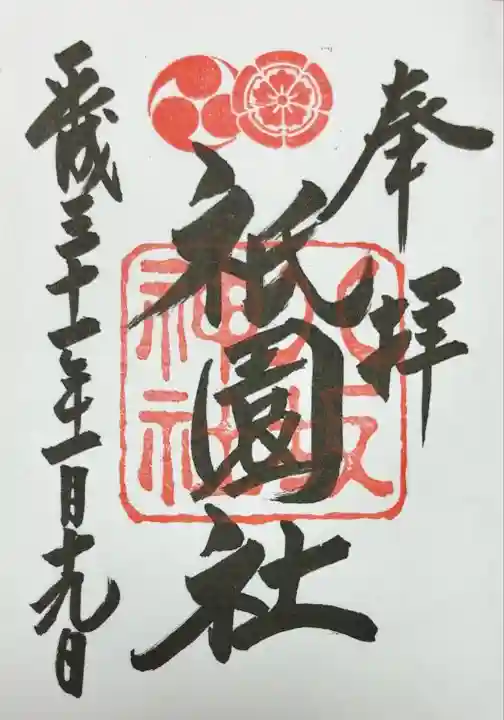 奉拝
祇園社
八坂神社
平成三十一年一月十九日